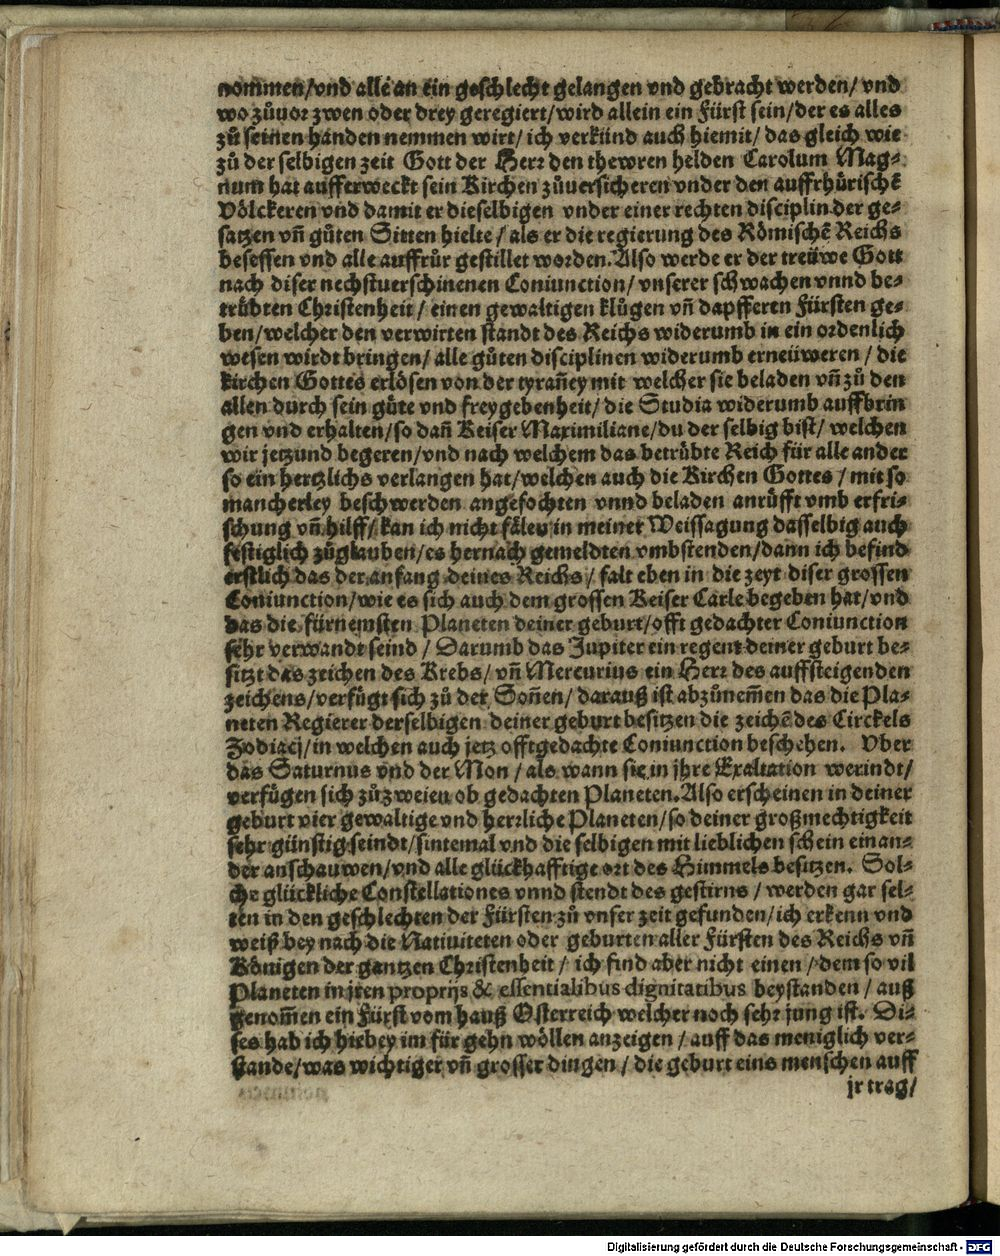 nommen/vnd alle an ein geschlecht gelangen vnd gebracht werden/ vnd
wo zůuor zwen oder drey geregiert/wird allein ein Fürst sein/der es alles
zů seinen handen nemmen wirt/ ich verkünd auch hiemit/ das gleich wie
zů der selbigen zeit Gott der Herr den theworen helden Carolum Mag-
num hat aufferweckt sein Kirchen zůuersicheren vnder den auffrhůrischē
Völckeren vnd damit er dieselbigen vnder einer rechten disciplin der ge-
satzen vñ gůten Sitten hielte / als er die regierung des Römischē Reichs
besessen vnd alle auffrůr gestillet worden. Also werde er der treüwe Gott
nach diser nechstuerschinenen Coniunction / vnserer schwachen vnnd be-
trübten Christenheit / einen gewaltigen klůgen vñ dapfferen Fürsten ge-
ben/welcher den verwirten standt des Reichs widerumb in ein ordenlich
wesen wirdt bringen/ alle gůten disciplinen widerumb erneüweren / die
kirchen Gottes erlösen von der tyrañey mit welcher sie beladen vñ zů den
allen durch sein güte vnd freygebenheit/ die Studia widerumb auffbrin
gen vnd erhalten/so dañ Keiser Maximiliane/du der selbig bist/ welchen
wir jetzund begeren/vnd nach welchem das betrübte Reich für alle ander
so ein hertzlichs verlangen hat/welchen auch die Kirchen Gottes / mit so
mancherley beschwerden angefochten vnnd beladen anrüfft vmb erfri-
schung vñ hilff/ kan ich nicht fälen in meiner Weissagung dasselbig auch
festiglich zůglauben/es hernach gemeldten vmbstenden/dann ich befind
erstlich das der anfang deines Reichs / falt eben in die zeyt diser grossen
Coniunction/wie es sich auch dem grossen Keiser Carle begeben hat/vnd
das die fürnemsten Planeten deiner geburt/offt gedachter Coniunction
sehr verwandt seind / Darumb das Jupiter ein regent deiner geburt be-
sitzt das zeichen des Krebs/ vñ Mercurius ein Herr des auffsteigenden
zeichens/verfügt sich zů der Soñen/ darauß ist abzůnem̃en das die Pla-
neten Regierer derselbigen deiner geburt besitzen die zeichē des Circkels
Zodiacj/in welchen auch jetz offtgedachte Coniunction beschehen. Vber
das Saturnus vnd der Mon / als wann sie in jhre Exaltation werindt/
verfügen sich zůzweien ob gedachten Planeten. Also erscheinen in deiner
geburt vier gewaltige vnd herrliche Planeten/so deiner großmechtigkeit
sehr günstig seindt/sintemal vnd die selbigen mit lieblichen schein einan-
der anschauwen/vnd alle glückhafftige ort des Himmels besitzen. Sol-
che glückliche Constellationes vnnd stendt des gestirns / werden gar sel-
ten in den geschlechten der Fürsten zů vnser zeit gefunden/ich erkenn vnd
weiß bey nach die Natiuiteten oder geburten aller Fürsten des Reichs vñ
Königen der gantzen Christenheit / ich find aber nicht einen / dem so vil
Planeten in jren proprijs & essentialibus dignitatibus beystanden / auß
genom̃en ein Fürst vom hauß Osterreich welcher noch sehr jung ist. Di-
ses hab ich hiebey im für gehn wöllen anzeigen / auff das meniglich ver-
stande/was wichtiger vñ grosser dingen / die geburt eins menschen auff
jr trag/
Digitalisierung gefördert durch die Deutsche Forschungsgemeinschaft - DFG